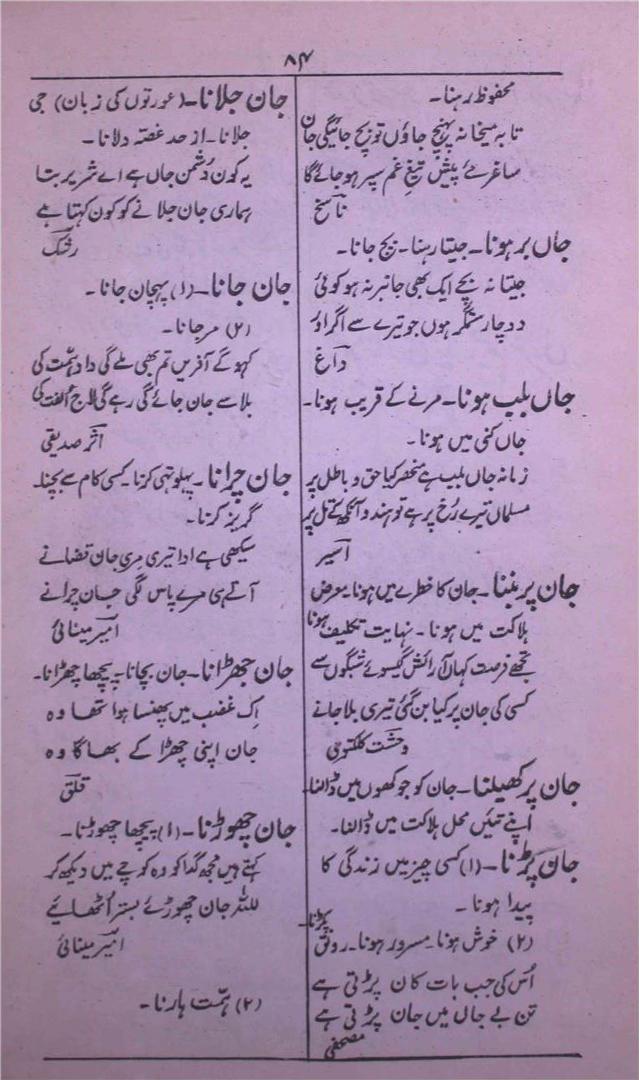 ۸۴
محفوظ رہنا۔
تا بہ میخانہ پہنچ جاؤں تو بچ جائیگی جان
ساغرِ مے پیشِ تیغِ غم سپر ہو جائے گا
ناسخ
جاں بر ہونا۔ جیتا رہنا۔ بچ جانا۔
جیتا نہ بچے ایک بھی جانبر نہ ہو کوئی
دوچار ستمگر ہوں جو تیرے سے اگر اور
داغ
جاں بلب ہونا۔ مرنے کے قریب ہونا۔
جاں کنی میں ہونا۔
زمانہ جاں بلب ہے منحصر کیا حق و باطل پر
مسلماں تیرے رُخ پر ہے تو ہندو آنکھ کے تل پر
اسیر
جان پر بننا۔ جان کا خطرے میں ہونا۔ معرض
ہلاکت میں ہونا۔ نہایت تکلیف ہونا
تجھے فرصت کہاں آرائشِ گیسوئے شبگوں سے
کسی کی جان پر کیا بن گئی تیری بلا جانے
وحشت کلکتوی
جان پر کھیلنا۔ جان کو جوکھوں میں ڈالنا۔
اپنے تئیں محل ہلاکت میں ڈالنا۔
جان پڑنا۔ (۱) کسی چیز میں زندگی کا
پیدا ہونا۔
(۲) خوش ہونا۔ مسرور ہونا۔ رونق پکڑنا۔
اُس کی جب بات کان پڑتی ہے
تن بے جاں میں جان پڑتی ہے
مصحفی
جان جلانا۔ (عورتوں کی زبان) جی
جلانا۔ از حد غصّہ دلانا۔
یہ کون دُشمن جاں ہے اے شریر بتا
ہماری جان جلانے کو کون کہتا ہے
رشک
جان جانا۔ (۱) پہچان جانا۔
(۲) مر جانا۔
کہو گے آفریں تم بھی ملے گی داد ہمّت کی
بلا سے جان جائے گی رہے گی لاج اُلفت کی
اثر صدیقی
جان چرانا۔ پہلو تہی کرنا کسی کام سے بچنا۔
گریز کرنا۔
سیکھی ہے ادا تیری مری جان قضا نے
آتے ہی مرے پاس لگی جان چرانے
امیر مینائی
جان چھڑانا۔ جان بچانا۔ پیچھا چھڑانا۔
اِک غضب میں پھنسا ہوا تھا وہ
جان اپنی چھڑا کے بھاگا وہ
قلق
جان چھوڑنا۔ (۱) پیچھا چھوڑنا۔
کہتے ہیں مجھ گدا کو وہ کوچے میں دیکھ کر
للّٰہ جان چھوڑئے بستر اُٹھائیے
امیر مینائی
(۲) ہمّت ہارنا۔